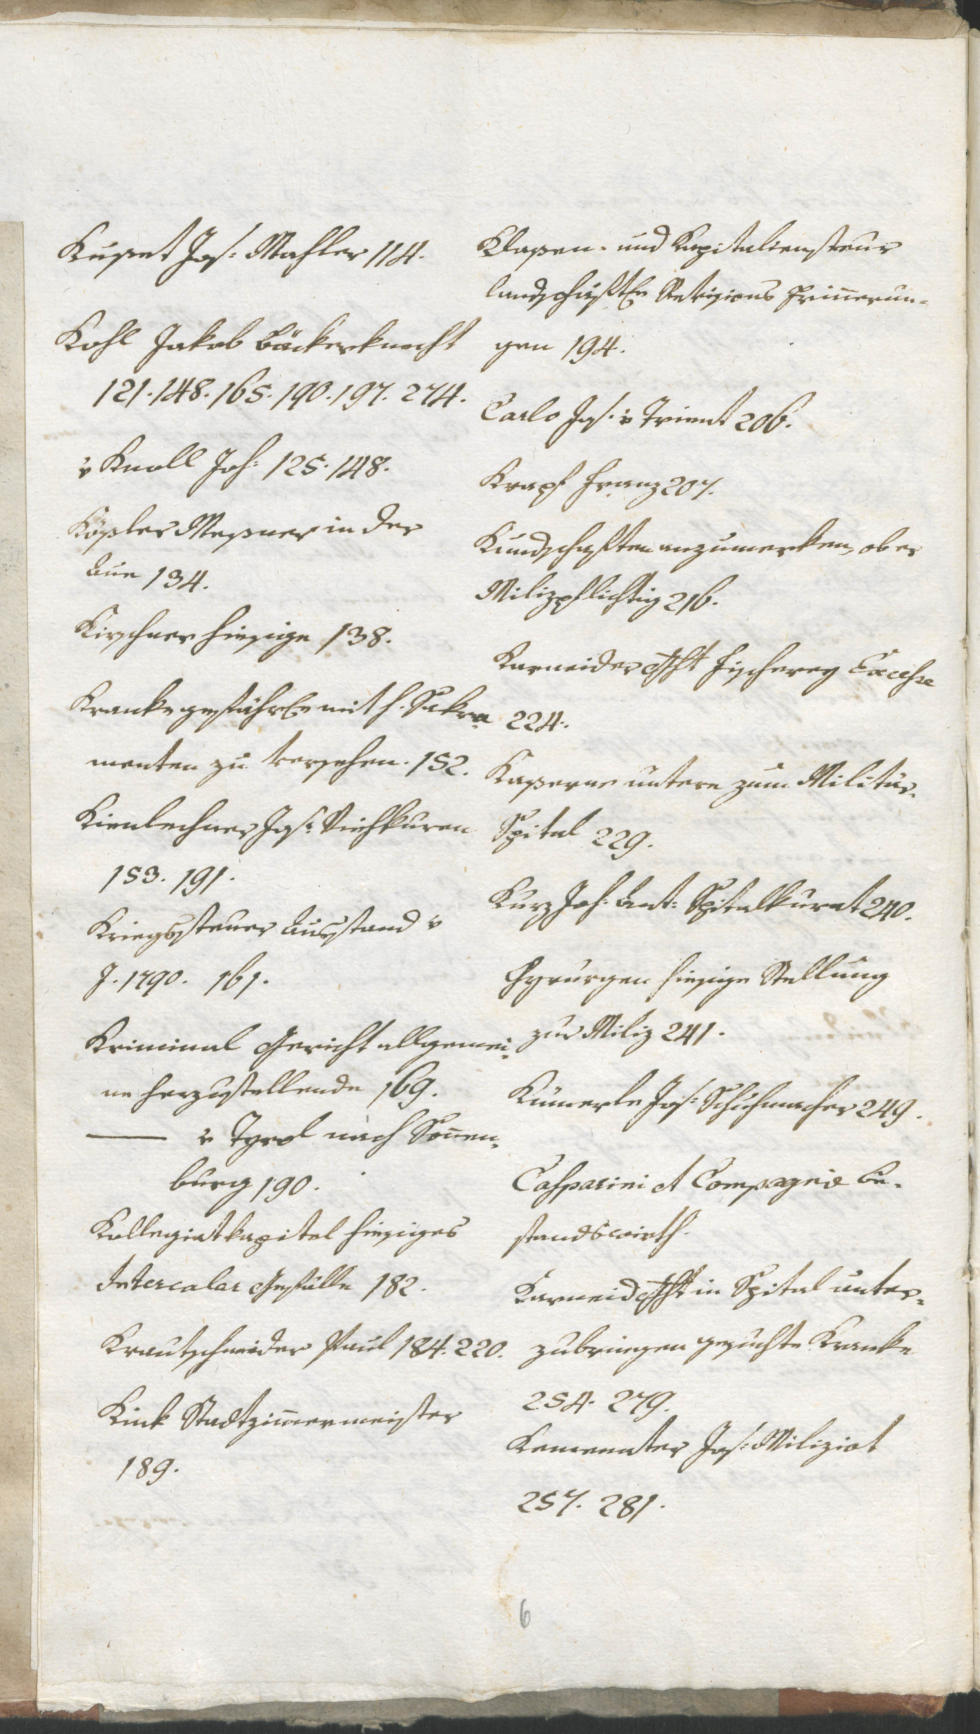 Kusset Jos: Mahler 114.
Kohl Jakob Bäckerknecht
121. 148. 165. 190. 197. 274.
v Knoll Joh: 125. 148.
Kößler Meßner in der
Aue 134.
Kirschner hiesige 138.
Kranke mit h. Sakra
menten zu versehen. 152.
Kienlechner Jos:
153. 191.
Kriegssteuer Ausstand v
J. 1790. 161.
Kriminal Gericht allgemei-
ne herzustellende 169.
——— v Tyrol nach Sonnen-
burg 190.
Kollegiatkapitel hiesiges
Intercalar Gefälle 182.
Krautschneider Paul 184. 220.
Kink Stadtzimmermeister
189.
Klassen- und Kapitaliensteur
landschäftl Revisions Erinnerun-
gen 194.
Carlo Jos: v Trient 206.
Krapf Franz 207.
Kundschaften anzumerken, ob er
Milizpflichtig 216.
Karneider Gcht Fischerey Excesse
224.
Kaserne untere zum Militär-
Spital 229.
Kurz Joh: Ant: Spitalkurat 240.
Chyrurgen hiesige Stellung
zur Miliz 241.
Kümerle Jos: Schuhmacher 249.
Casparini et Compagnie Be-
standswirth.
Karneid Gcht in Spital unter-
zubringen gesuchte Kranke
254. 279.
Kemenater Jos: Miliziot
257. 281.
6